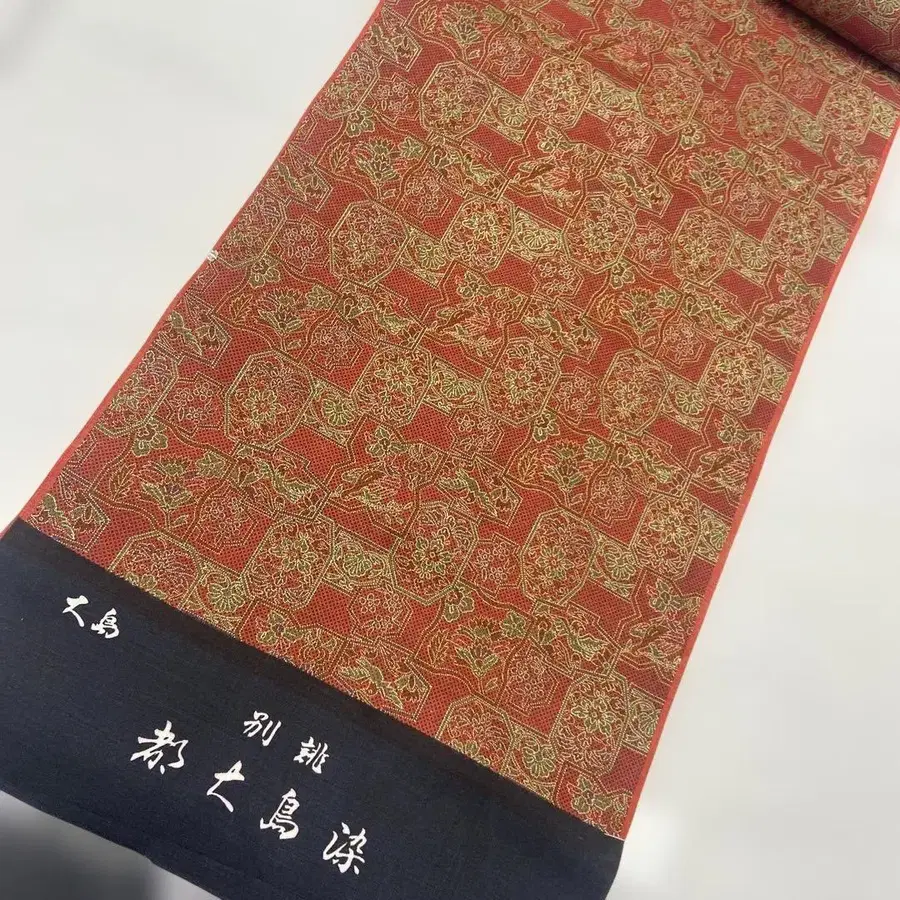 大島
別誂
都大島染